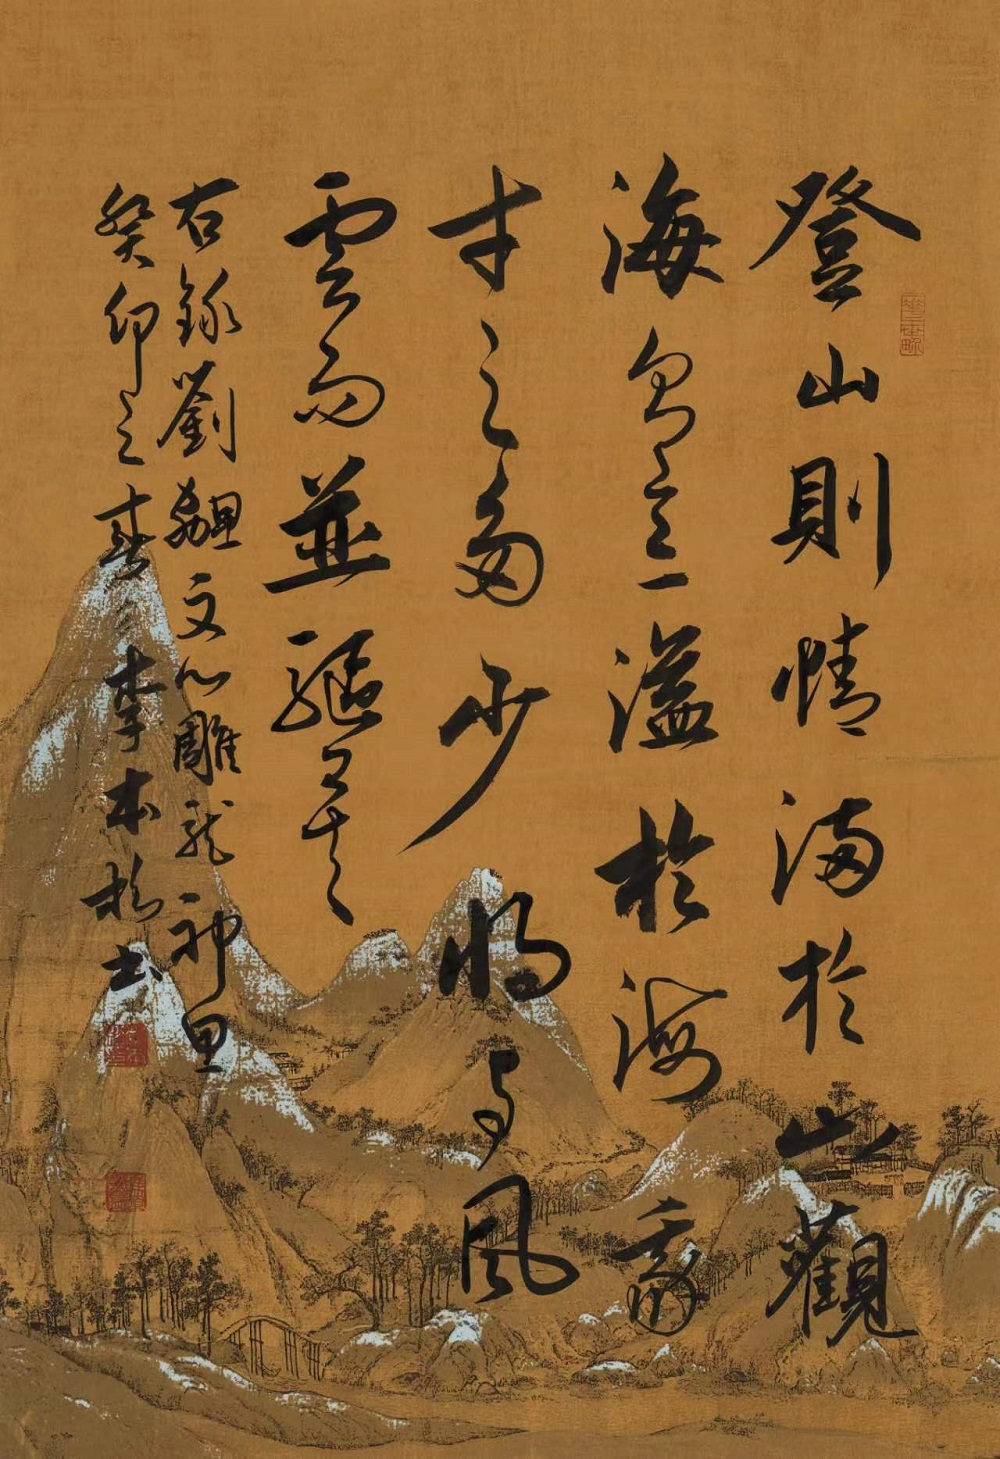 登山則情滿於山觀
海則意溢於海我
才之多少將与風
雲而並驅矣
右錄劉勰文心雕龍神思
癸卯之春李本松書